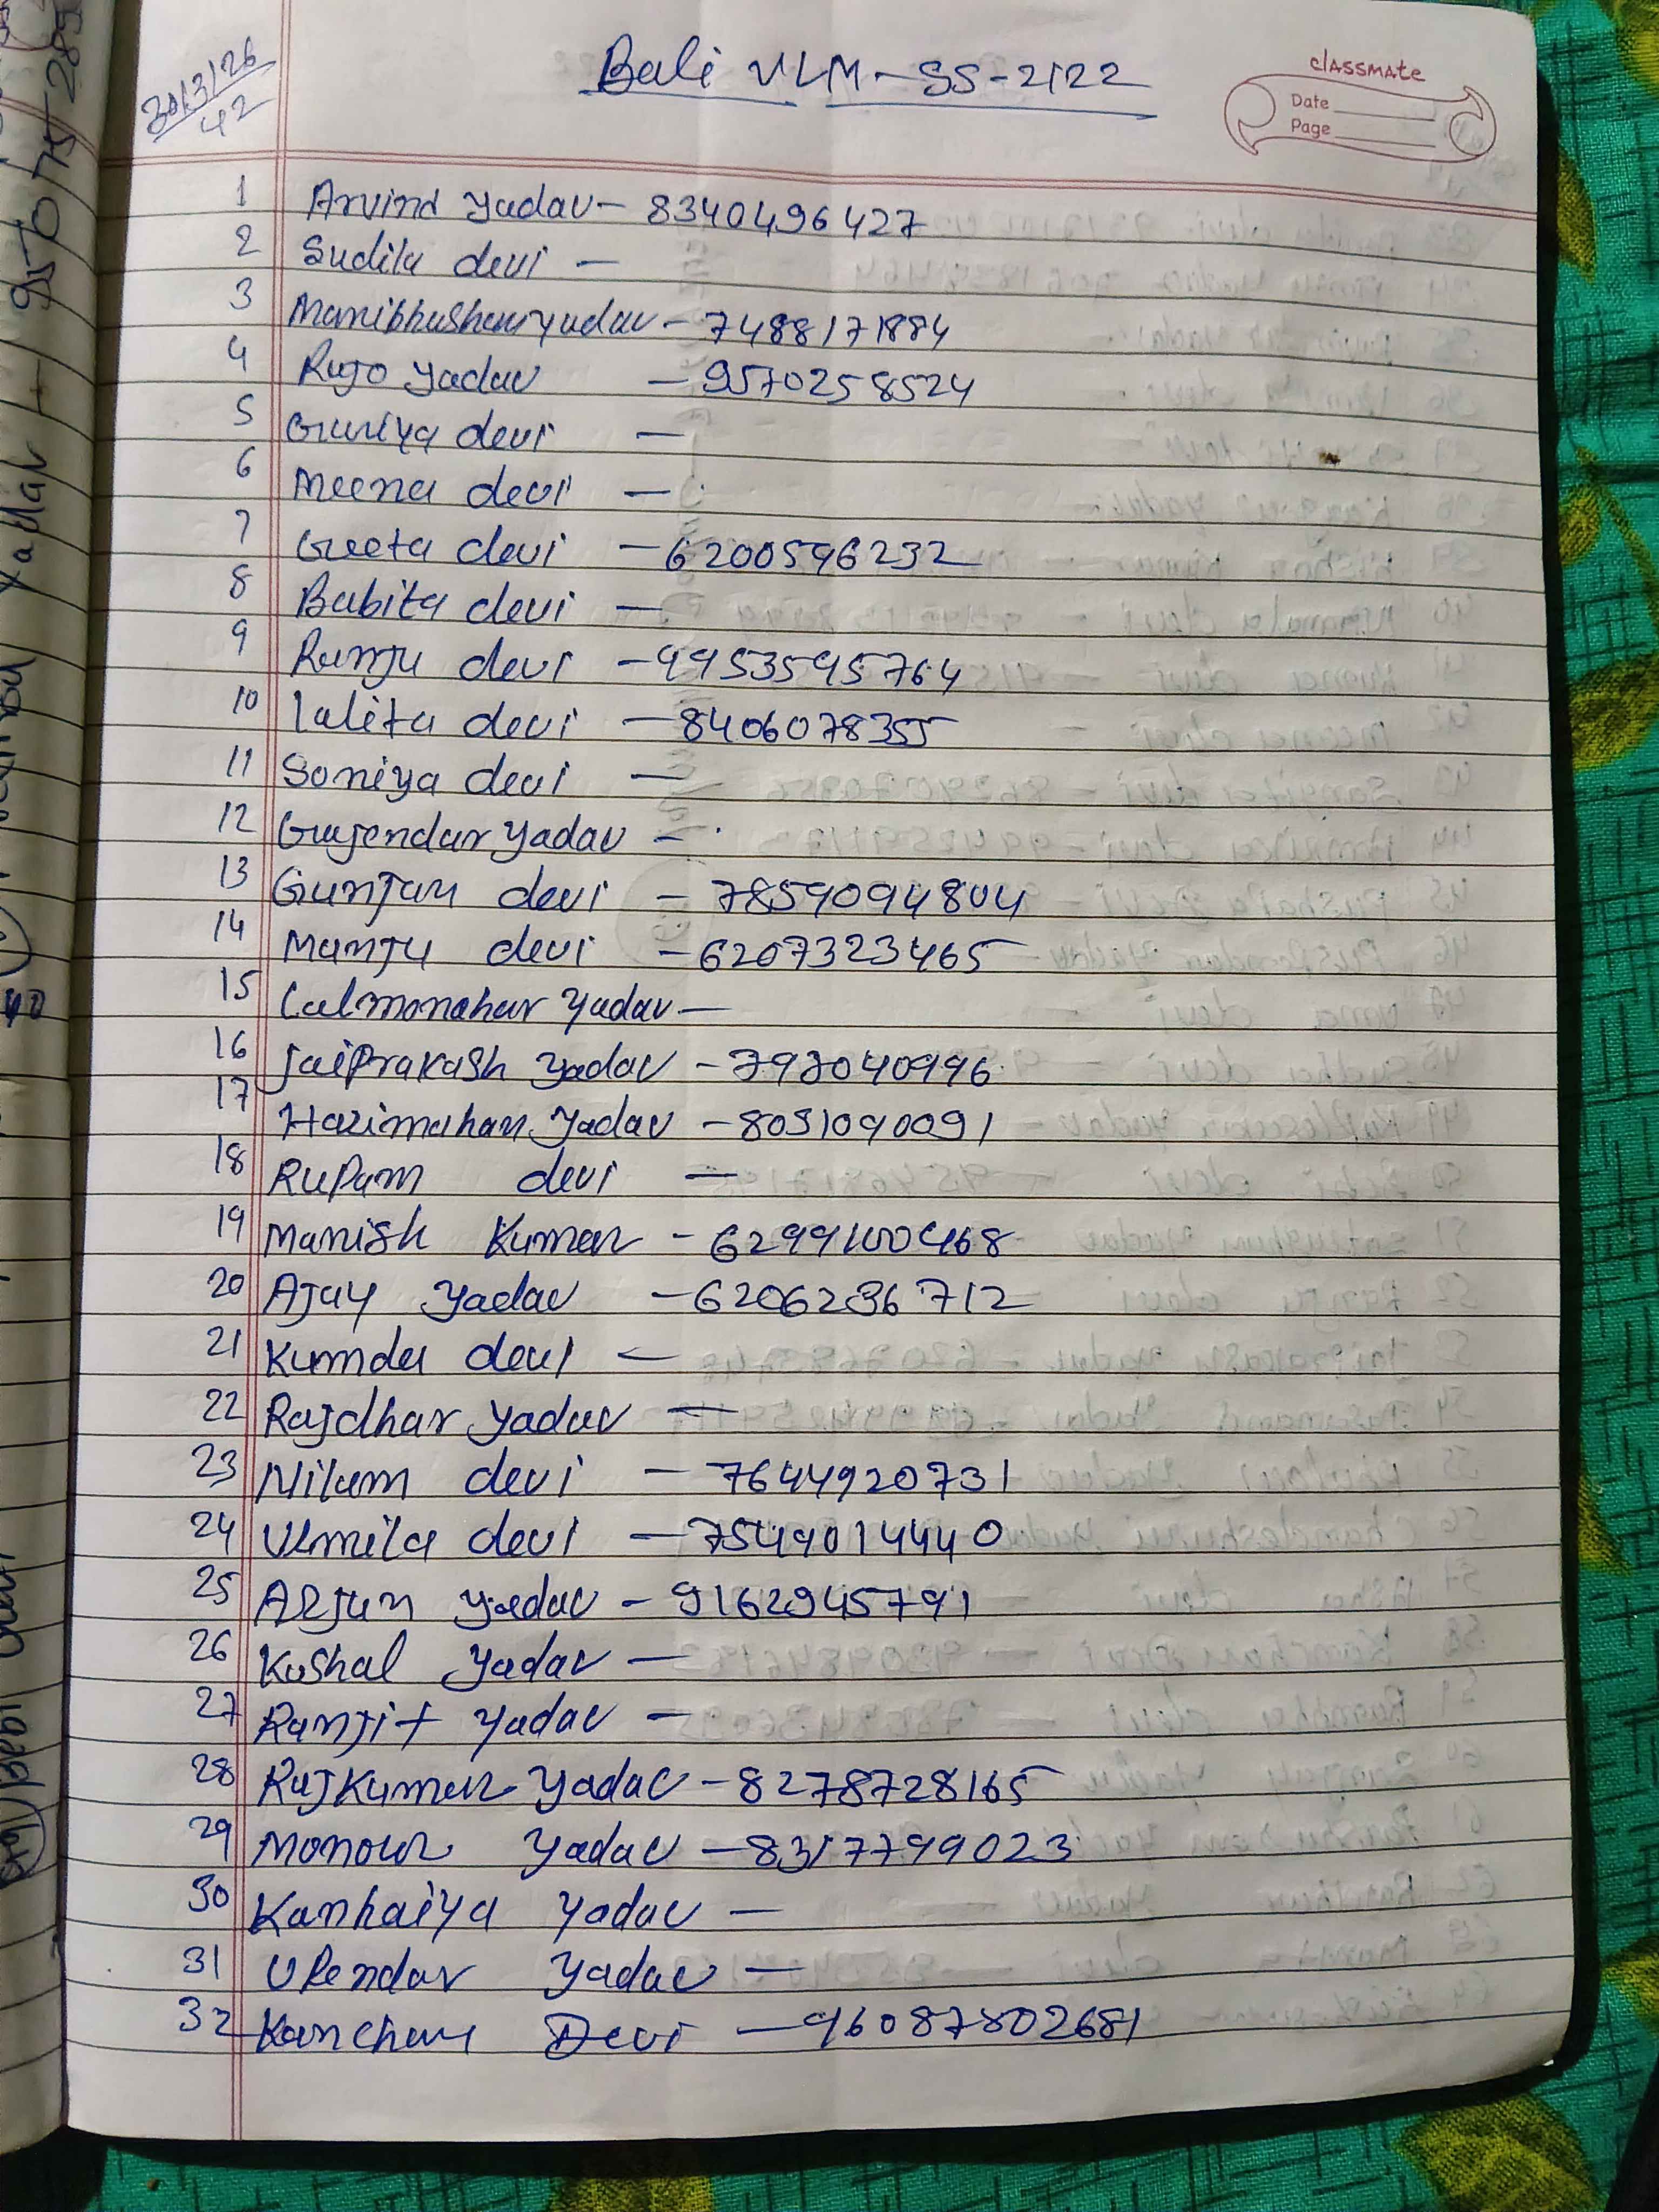 30/3/26
42
Bali VLM-SS-2122
classmate
Date
Page
1 Arvind Yadav - 8340496427
2 Sudila devi -
3 Manibhushan yadav - 7488171884
4 Rajo Yadav - 9570258524
5 Guriya devi -
6 Meena devi -
7 Geeta devi - 6200596232
8 Babita devi -
9 Ranju devi - 9953595764
10 lalita devi - 8406078355
11 Soniya devi -
12 Gajendar Yadav -
13 Gunjan devi - 7859094804
14 Manju devi - 6207323465
15 Lalmonahar Yadav -
16 JaiPrakash Yadav - 793040996
17 Harimohan Yadav - 8051090091
18 RuPam devi -
19 Manish Kumar - 6299100468
20 Ajay Yadav - 6206236712
21 Kumda devi -
22 Rajdhar Yadav -
23 Nilam devi - 7644920731
24 Urmila devi - 7549014440
25 Arjun Yadav - 9162945791
26 Kushal Yadav -
27 Ranjit Yadav -
28 RajKumar Yadav - 8278728165
29 Monour Yadav - 8317799023
30 Kanhaiya Yadav -
31 UPendar Yadav -
32 Kanchan Devi - 96087802681